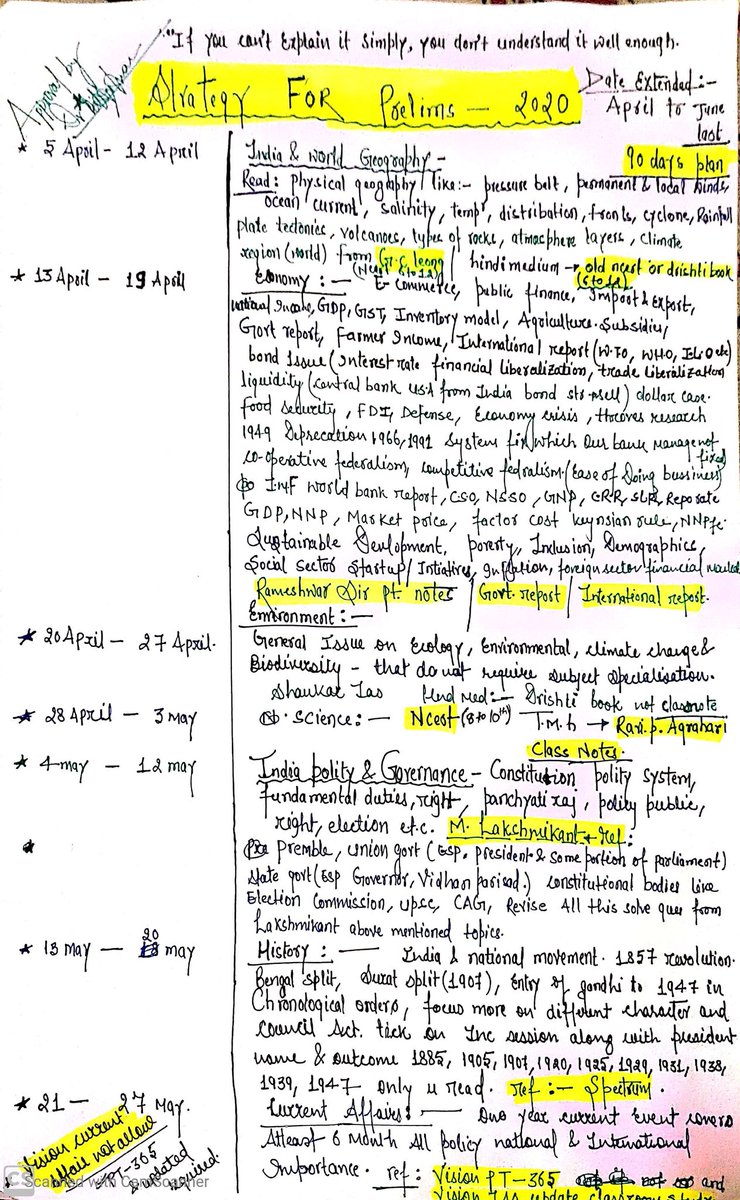 "If you can't Explain it simply, you don't understand it well enough.
Approval by
Strategy FOR Prelims - 2020
Date Extended:-
April to June
last
90 days plan
* 5 April - 12 April
India & world Geography -
Read: Physical geography like:- pressure belt, permanent & local winds,
ocean current, salinity, temp, distribution, fronts, cyclone, Rainfall
plate tectonics, volcanoes, types of rocks, atmosphere layers, climate
region (world) from G.C leong / hindi medium → old ncert or drishti book
(Ncert 6 to 12) (6 to 12)
* 13 April - 19 April
Economy :- E-commerce, public finance, Import & Export,
national Income, GDP, GST, Inventory model, Agriculture Subsidies,
Govt report, Farmer Income, International report (W.TO, WHO, ILO etc)
bond Issue (Interest rate financial liberalization, trade liberalization
liquidity (central bank USA from India bond sell) dollar case.
food security, FDI, Defense, Economy crisis, research
1949 Depreciation 1966, 1991 system fix which our bank manage not fixed
co-operative federalism, competitive fedralism. (Ease of Doing bussiness)
IMF World bank report, CSO, NSSO, GNP, CRR, SLR, Repo rate
GDP, NNP, Market price, factor cost keynsian rule, NNPfc
Sustainable Devlopment, poverty, Inclusion, Demographics,
Social Sector Startup/Intiatives, Inflation, foreign sector financial market
Rameshwar Sir pt. notes / Govt. report / International report.
* 20 April - 27 April.
Environment :-
General Issue on Ecology, Environmental, climate change &
Biodiversity - that do not require subject specialisation.
Shankar Ias Hind Med:- Drishti book not classnote
* 28 April - 3 May
Science :- Ncert (8 to 10th) T.M.h → Ravi.p. Agrahari
Class Notes.
* 4 may - 12 may
India polity & Governance - Constitution polity system,
fundamental duties, right, panchyati raj, polity public,
right, election etc. M. Lakshmikant + ref:
*
Premble, union govt (Esp. president & some portion of parliament)
State govt (Esp Governor, Vidhan parisad.) constitutional bodies like
Election Commission, upsc, CAG, Revise All this solve ques from
Lakshmikant above mentioned topics.
* 13 may - 20 may
History :- India & national movement. 1857 revolution.
Bengal split, Surat split (1907), Entry of gandhi to 1947 in
Chronological orders, focus more on different character and
council Act. tick on Inc session along with president
name & outcome 1885, 1905, 1907, 1920, 1925, 1929, 1931, 1938,
1939, 1947 only u read. ref :- Spectrum.
* 21 - 27 May.
Current Affairs :- One year current Event covers
Atleast 6 Month All policy national & International
Importance. ref: Vision PT-365 and
Vision current affair not allow
PT-365 updated required.
Vision Ias update classroom
CS Scanned with CamScanner